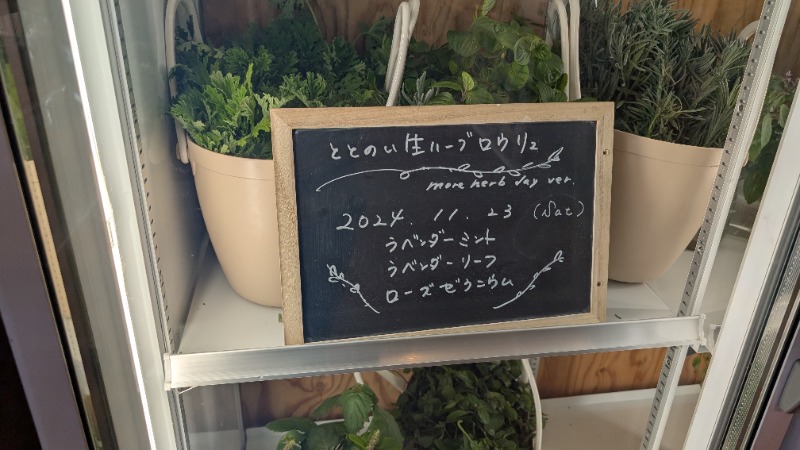 ととのい生ハーブロウリュ
more herb day ver.
2024. 11. 23 (Sat)
ラベンダーミント
ラベンダーリーフ
ローズゼラニウム